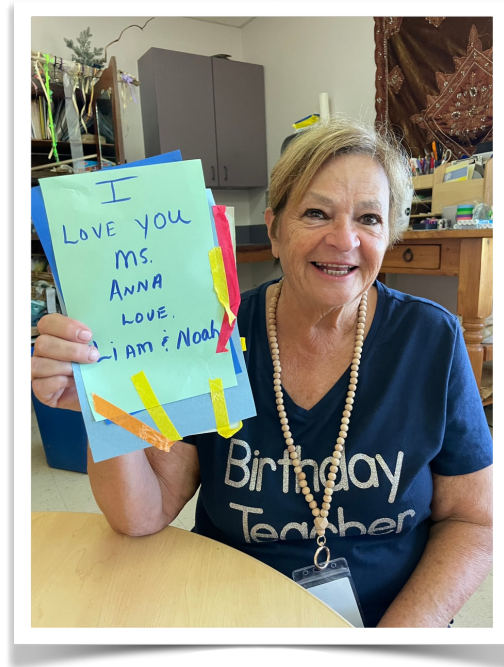 I
LOVE YOU
MS.
ANNA
LOVE,
LIAM & NOAH
Birthday
Teacher